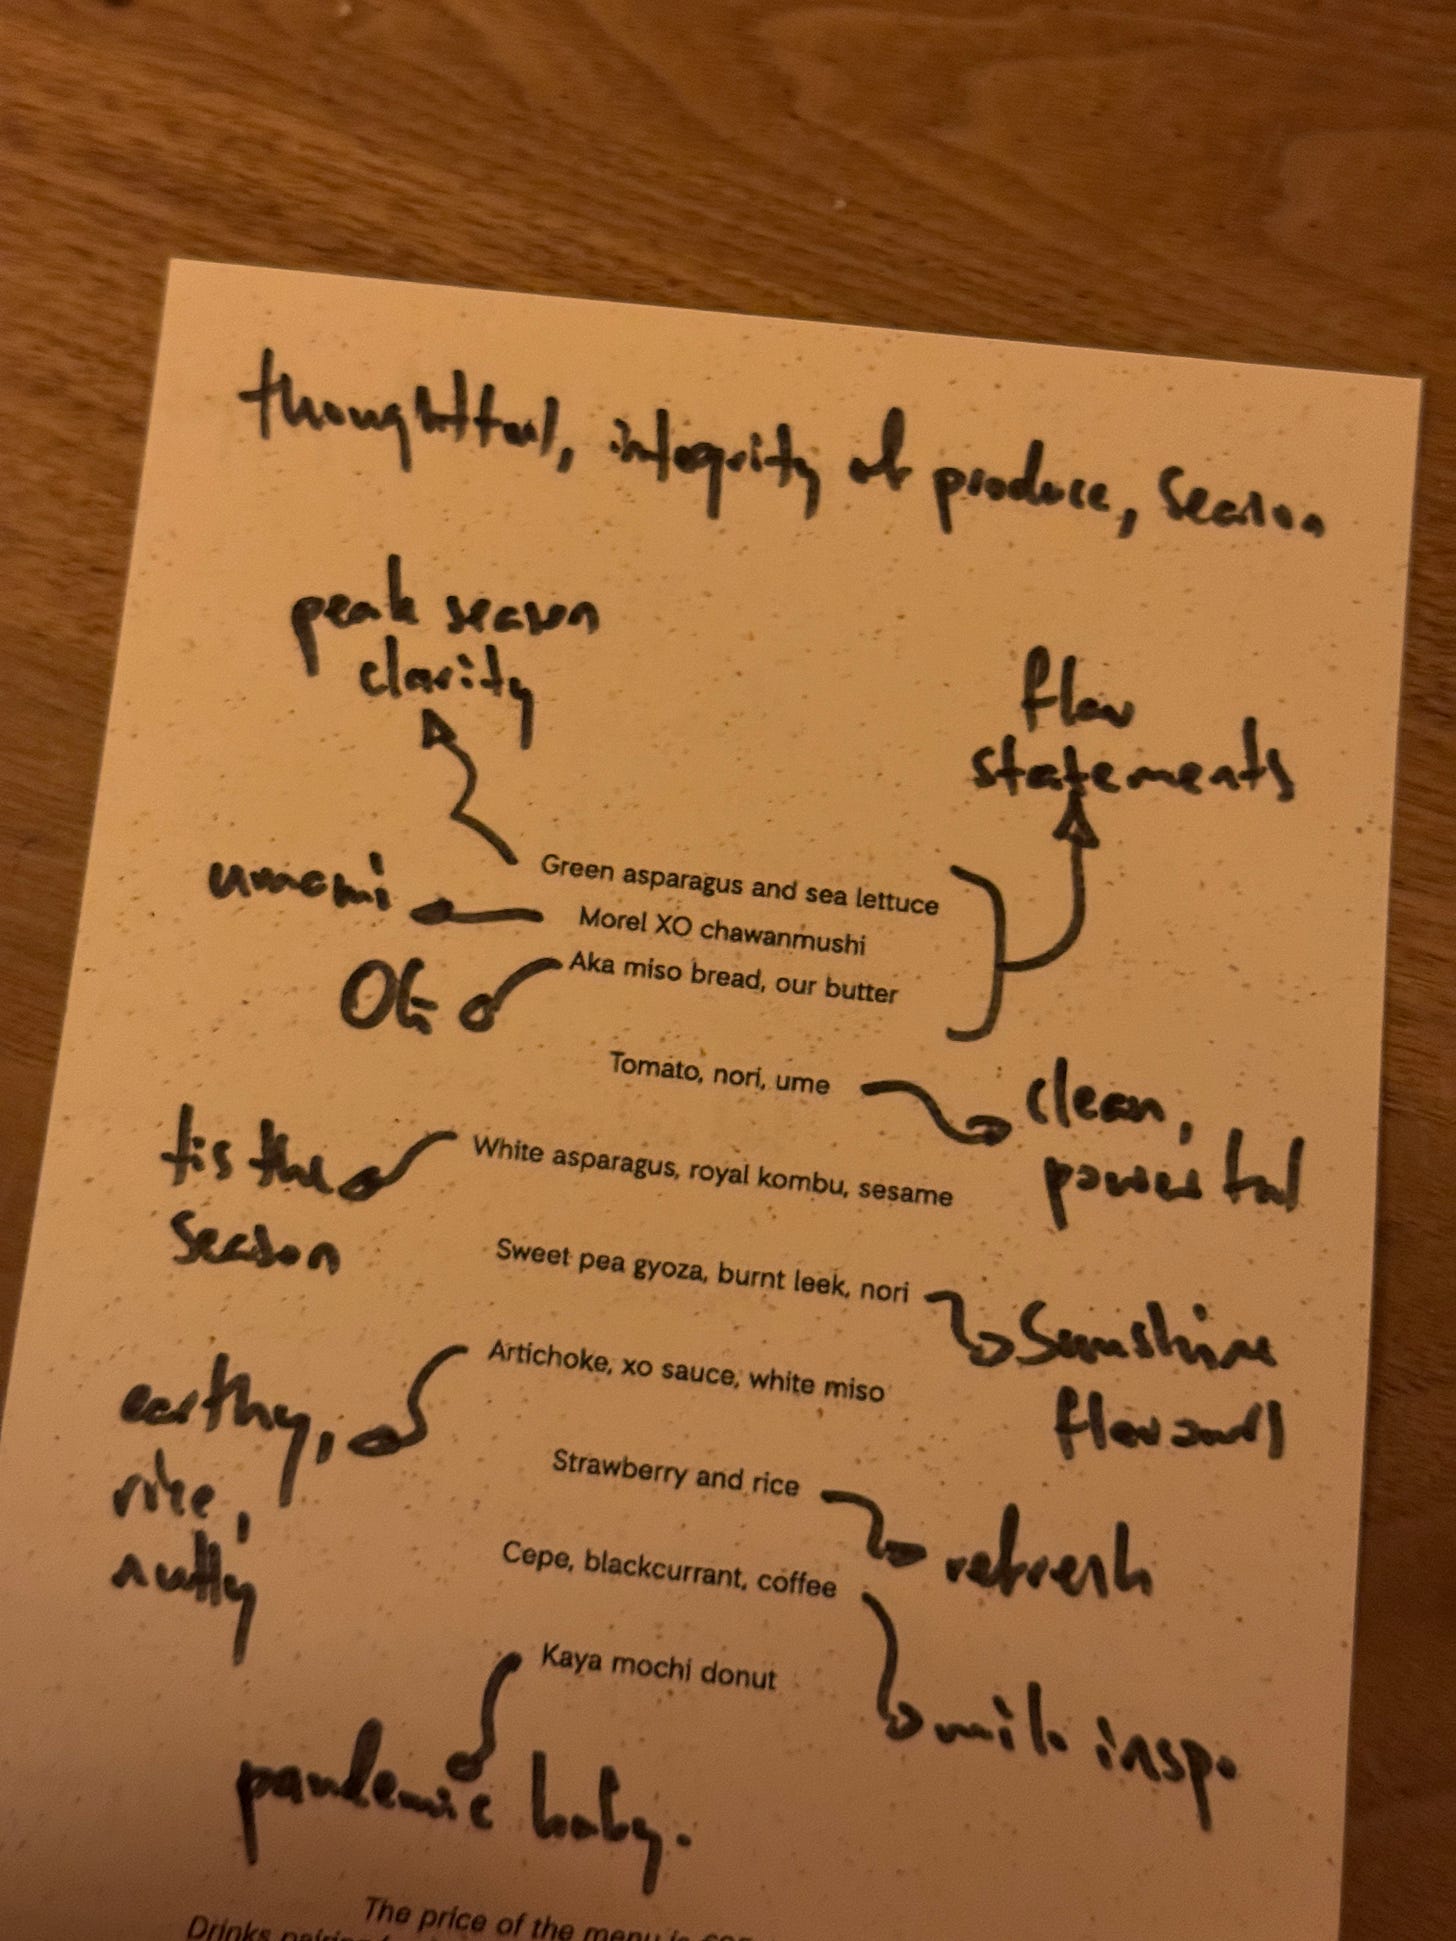 thoughtful, integrity of produce, season
peak season
clarity
flav
statements
Green asparagus and sea lettuce
umami
Morel XO chawanmushi
Aka miso bread, our butter
OG
Tomato, nori, ume
clean,
powerful
tis the
season
White asparagus, royal kombu, sesame
Sweet pea gyoza, burnt leek, nori
Sunshine
flavours
Artichoke, xo sauce, white miso
earthy,
nutty
Strawberry and rice
refresh
Cepe, blackcurrant, coffee
inspo
Kaya mochi donut
pandemic baby.
The price of the menu is
Drinks pairing